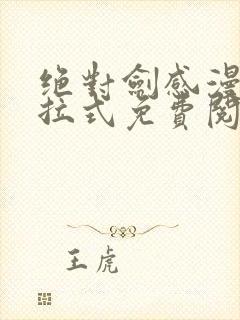 绝对劍感漫
拉式免費閱
王虎